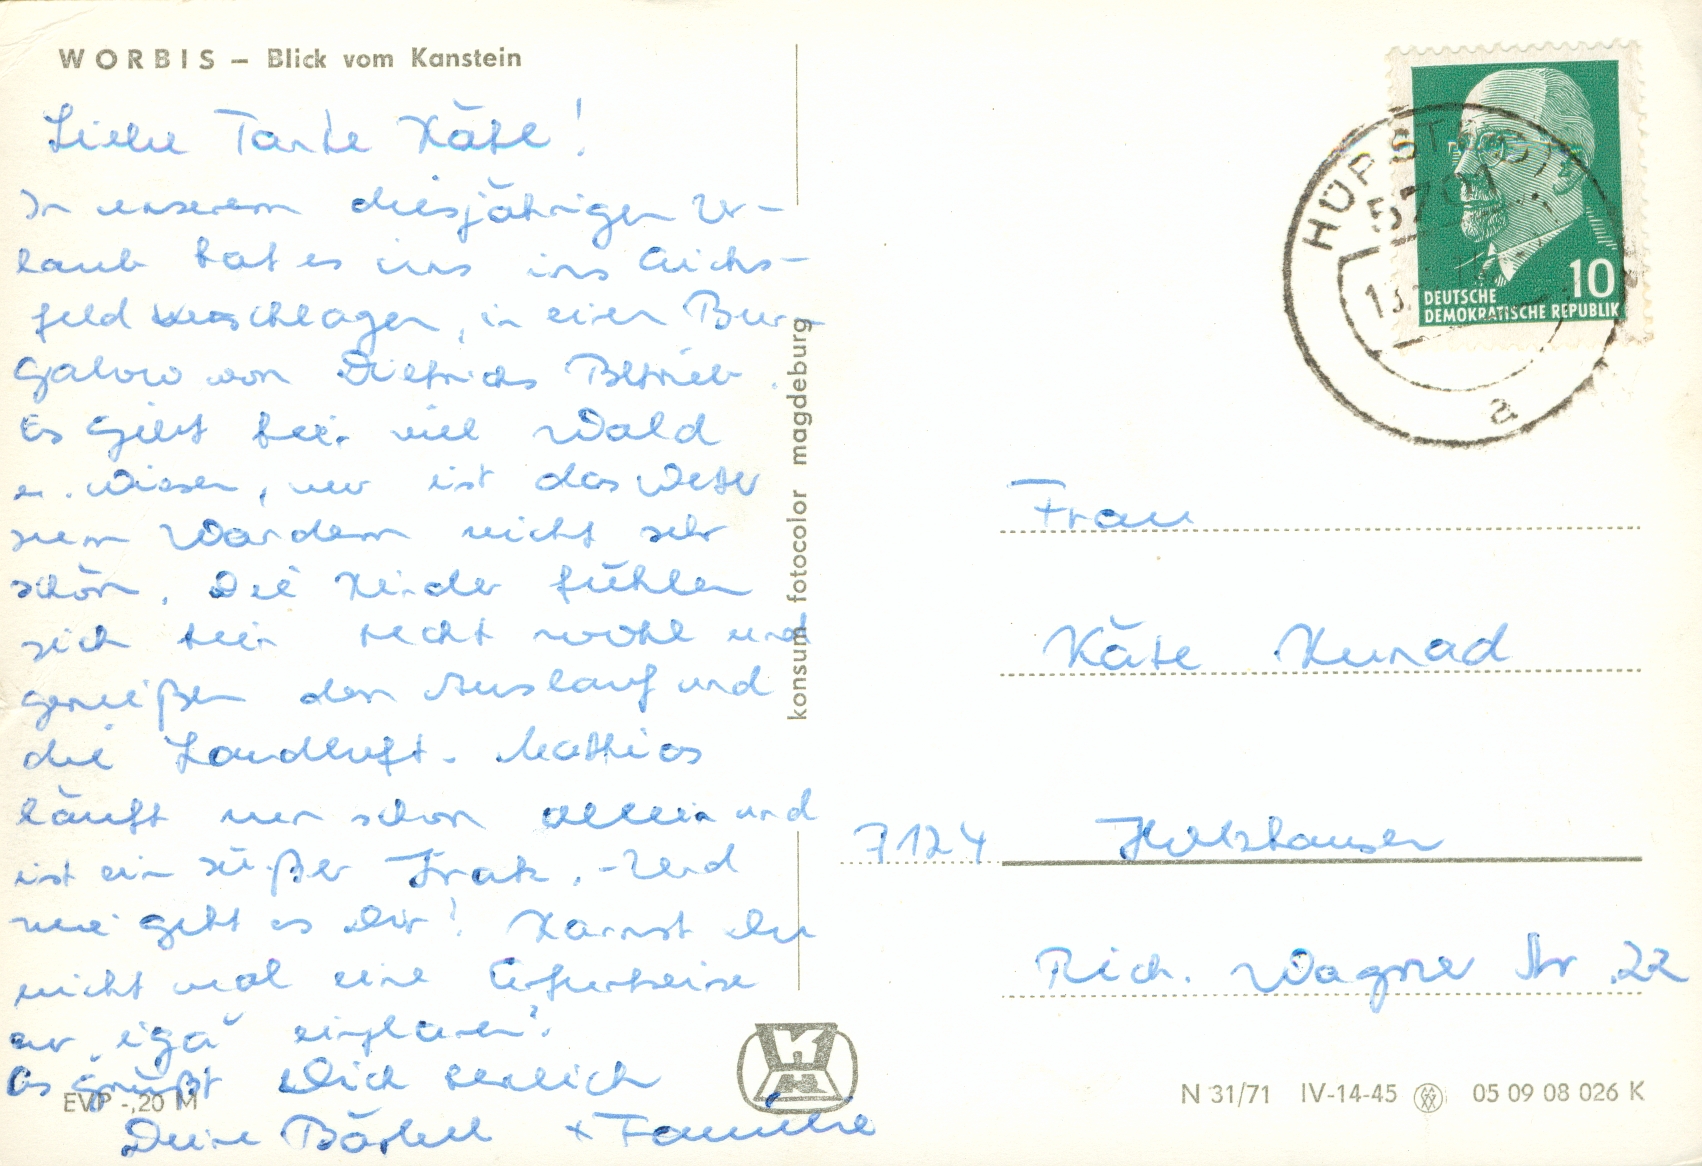 WORBIS – Blick vom Kanstein
Liebe Tante Käte!
In unserem diesjährigen Ur-
laub hat es uns ins Eichs-
feld verschlagen, in einen Bun-
galow von Dietrichs Betrieb.
Es gibt hier viel Wald
u. Wiesen, nur ist das Wetter
zum Wandern nicht sehr
schön. Die Kinder fühlen
sich hier recht wohl und
genießen den Auslauf und
die Landluft. Mathias
läuft nun schon allein und
ist ein süßer Fratz. - Und
wie geht es Dir? Kannst Du
nicht mal eine Erfurtreise
zur "iga" einplanen?
Es grüßt Dich herzlich
Deine Bärbel + Familie
EVP -,20 M
konsum fotocolor magdeburg
DEUTSCHE
DEMOKRATISCHE REPUBLIK
10
5701
a
Frau
Käte Kunad
7124 Holzhausen
Rich. Wagner Str. 22
N 31/71 IV-14-45 05 09 08 026 K